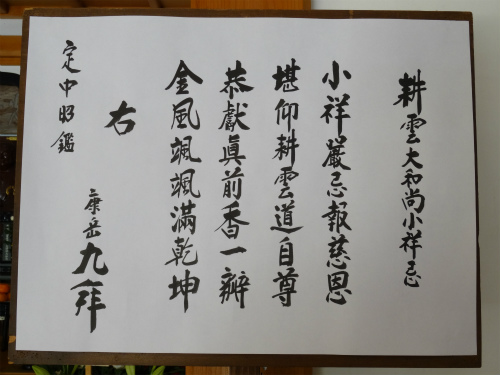 耕雲大和尚小祥忌
小祥嚴忌報慈恩
堪仰耕雲道自尊
恭獻眞前香一瓣
金風颯颯滿乾坤
右
定中昭鑑
康岳九拜